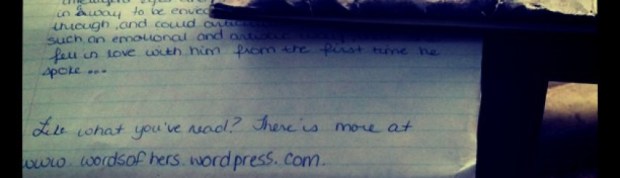 in away to be envied
through, and could
such an emotional and
fell in love with him from the first time he
spoke ...
Like what you've read? There is more at
www.wordsofhers.wordpress.com.